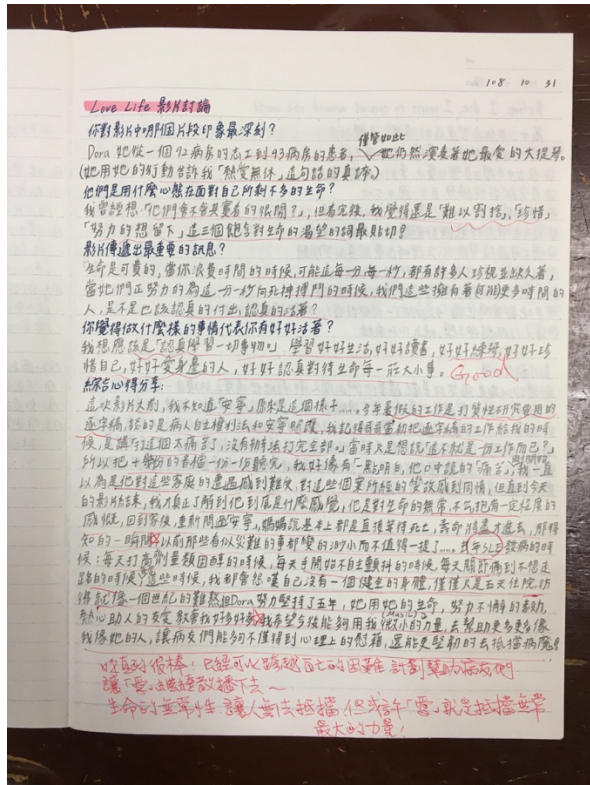 108 10 31
Love Life 影片討論
你對影片中哪個片段印象最深刻?
Dora 她從一個92病房的志工到93病房的患者,儘管如此她仍然演奏著她最愛的大提琴。
(她用她的行動告訴我「熱愛無休」這句話的真諦。)
他們是用什麼心態在面對自己所剩不多的生命?
我曾經想「他們會不會其實看的很開?」,但看完後,我覺得還是「難以割捨」、「珍惜」
「努力的想留下」這三個飽含對生命的渴望的詞最貼切!
影片傳遞出最重要的訊息?
生命是可貴的,當你浪費時間的時候,可能這每一分每一秒,都有許多人珍視並缺乏著,
當她們正努力的為這一分一秒向死神搏鬥的時候,我們這些擁有著可能更多時間的
人,是不是也該認真的付出,認真的活著?
你覺得做什麼樣的事情代表你有好好活著?
我想應該是「認真學習一切事物。」 學習好好生活,好好讀書,好好練琴,好好珍
惜自己,好好愛身邊的人,好好認真對待生命每一莊大小事。 Good
綜合心得分享:
這次影片太前,我不知道「安寧」原來是這個樣子....。今年暑假的工作是打質性研究會用的
逐字稿,談的是病人自主權利法和安寧照護,我記得哥哥當初把逐字稿的工作給我的時
候,是講「打這個太痛苦了,沒有辦法打完全部。」當時只是想說「這不就是一份工作而已?」
所以把十幾份的音檔一份一份聽完,我好像有一點明白,他口中說的「痛苦」,我一直
以為是他對這些家庭的遭遇感到難受,對這些個案所經的變故感到同情,但直到今天
的影片結束,我才真正了解到他到底是什麼感覺,他是對生命的無常,不公抱有一定程度的
感慨,回到家後,重新問過安寧,媽媽說基本上都是直接等待死亡,壽命將盡才進去,那得
知的一瞬間,以前那些看似災難的事都變的渺小而不值得一提了....。去年SLE發病的時
候:每天打高劑量類固醇的時候,每天手開始不自主顫抖的時候,每天關節痛到不想走
路的時候,這些時候,我都會怨嘆自己沒有一個健全的身體,僅僅只是五天住院,彷
彿就像一個世紀的難熬,但Dora努力堅持了五年,她用她的生命,努力不懈的奮鬥,
熱心助人的奉獻教導我好多好多,我希望今後能夠用我(music)微小的力量,去幫助更多更多像
我像她的人,讓病友們能夠不僅得到心理上的慰藉,還能更堅韌的去抵擋病魔!
哇真的很棒!已經可以跨越自己的困難 計劃幫助病友們
讓「愛」繼續散播下去~
生命的無常性 讓人無法抵擋 但或許「愛」就是抵擋無常
最大的力量!